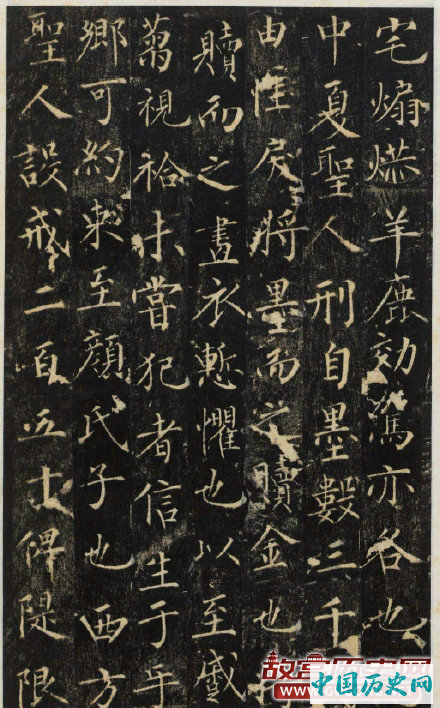 宅煽燕羊鹿効駕亦各也
中夏聖人刑自墨數三千
由惟戾將墨而之贖金也
贖而之畫衣慙懼也以至戚
蒭視袷未嘗犯者信生于平
鄉可約束至顏氏子也西方
聖人設戒二百五十俾隄限
中国历史网